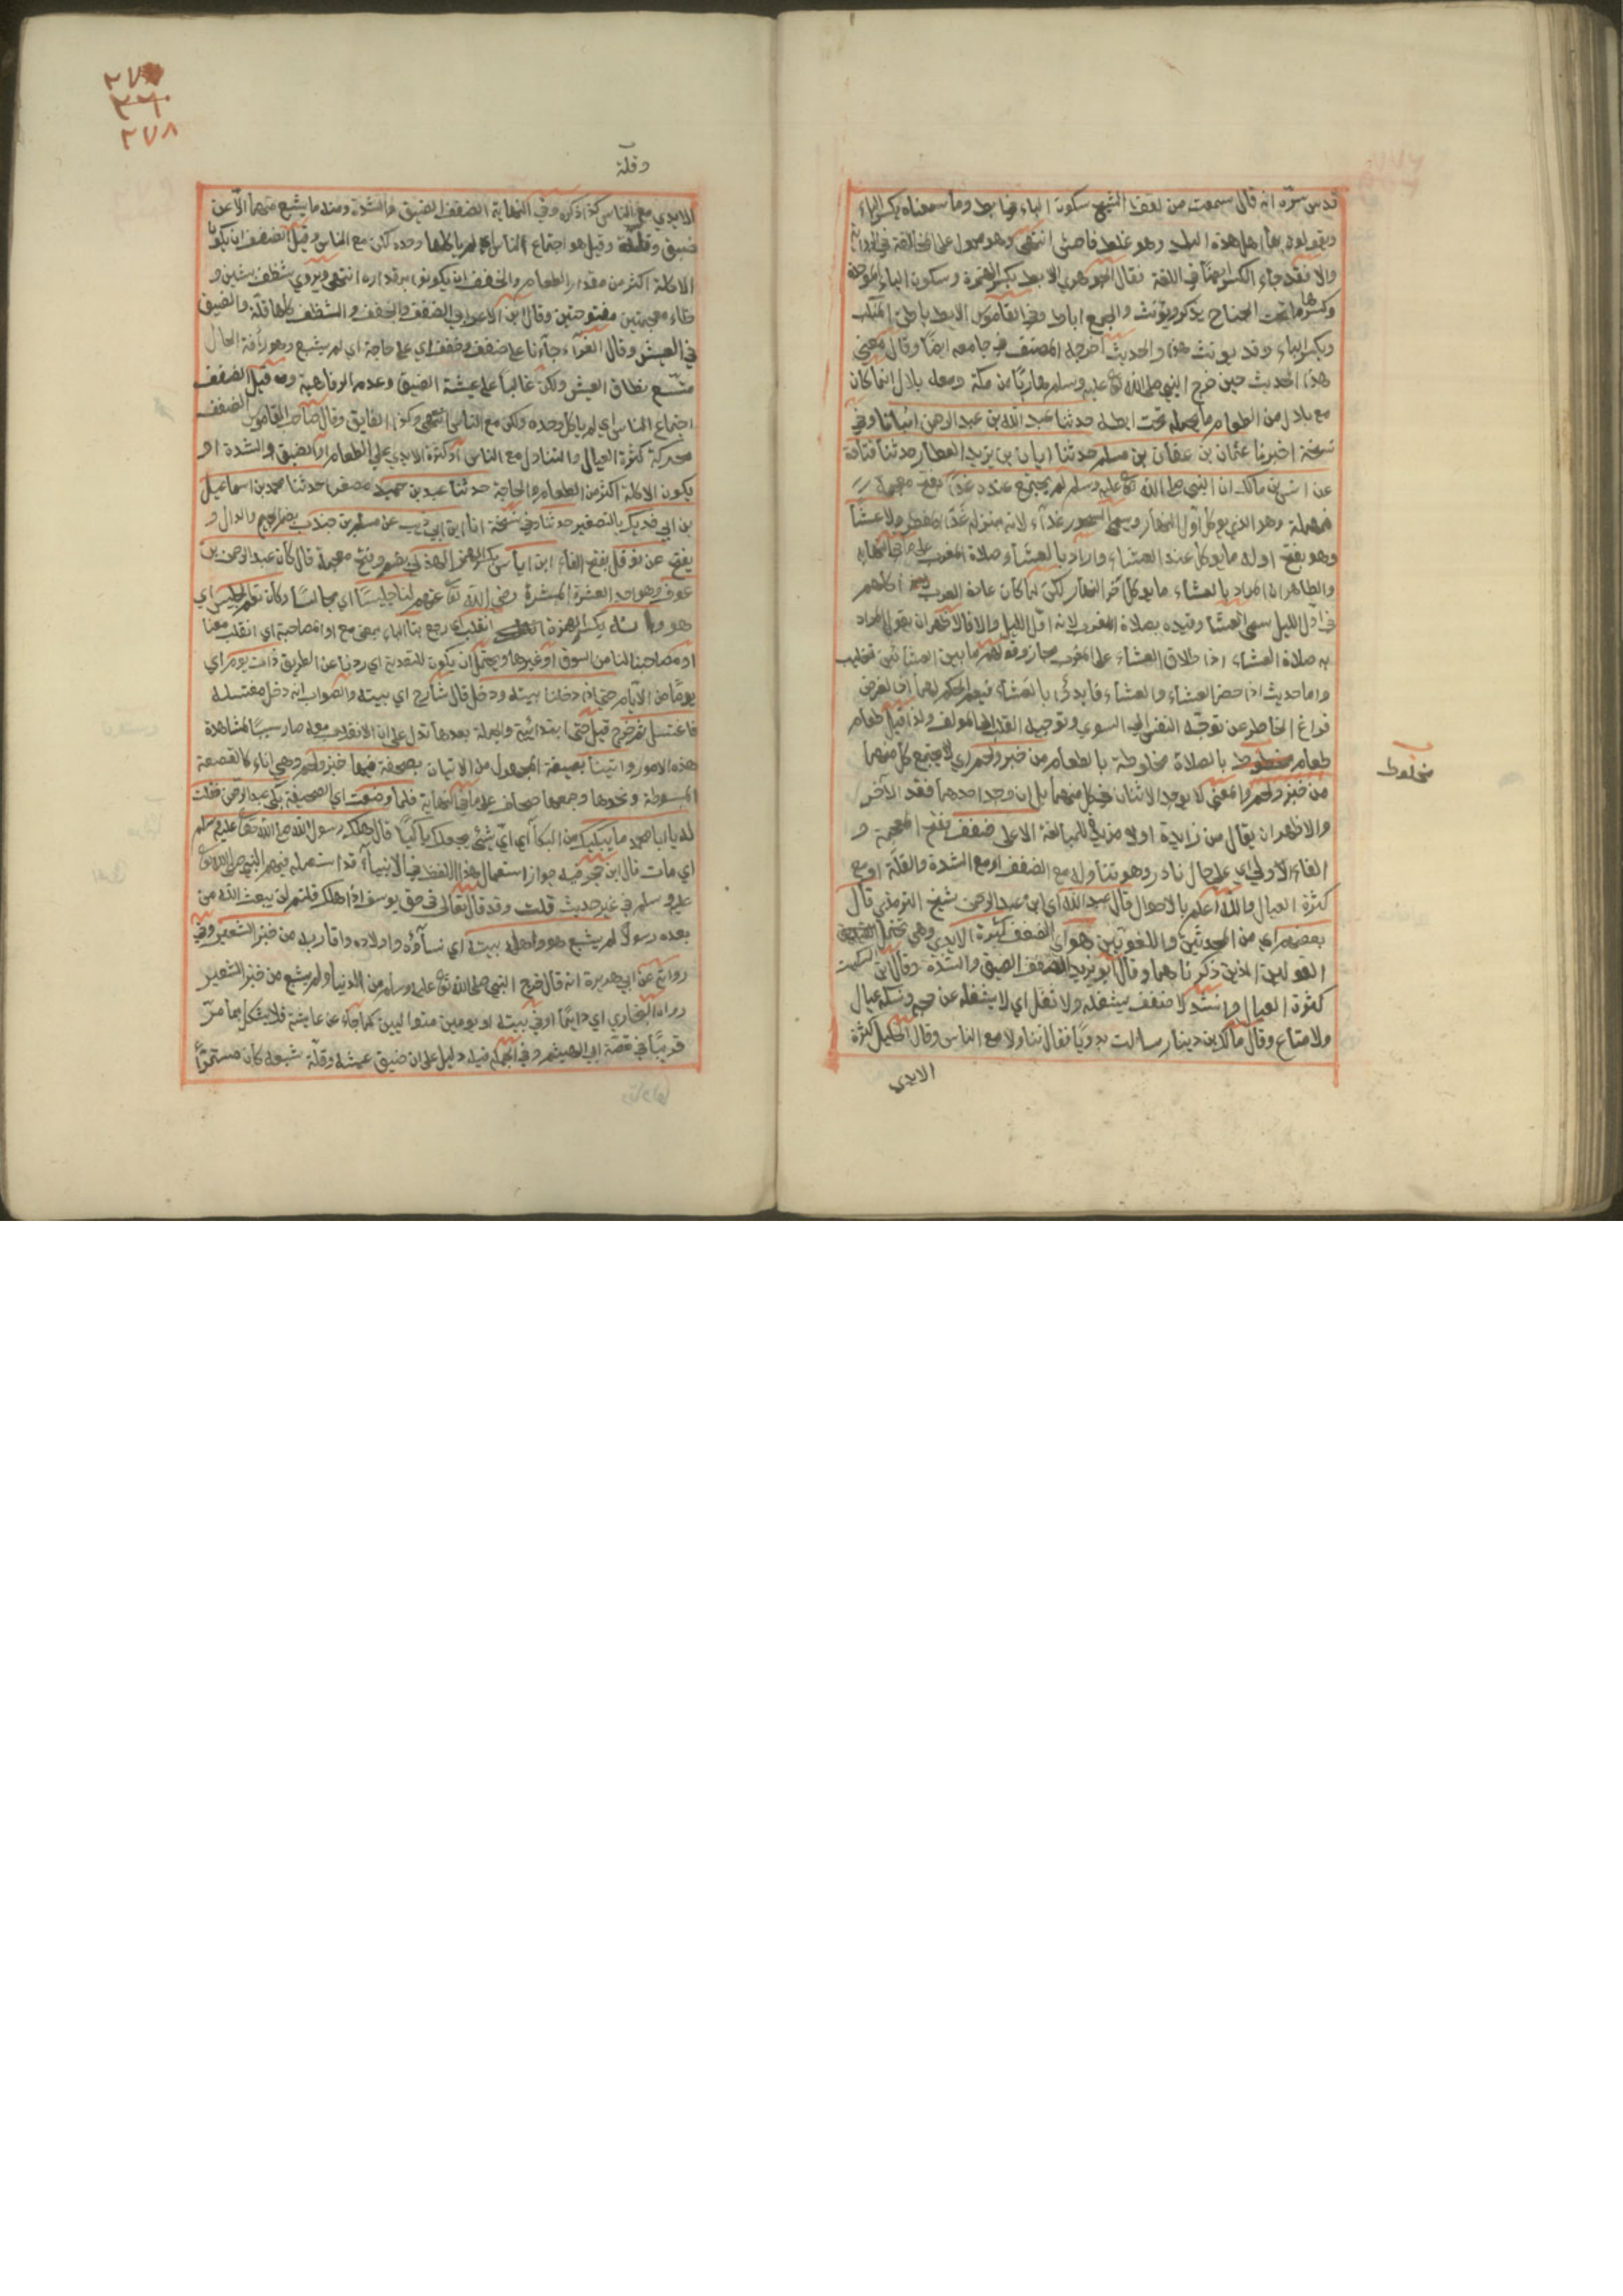 قدس سره انه قال سمعت من لفظ الشيخ سكون الباء في ابط وما سمعناه بكسر الباء
ويقولون بها اهل هذه البلد وهو غلط فاحش انتهى وهو محمول على المخالفة في الرواية
والا فقد جاء الكسر ايضا في اللغة فقال الجوهري الابط بكسر الهمزة وسكون الباء الموحدة
وكسرها ما تحت الجناح يذكر ويؤنث والجمع اباط وفي القاموس الابط باطن المنكب
وبكسر الباء وقد يؤنث هذا والحديث اخرجه المصنف في جامعه ايضا وقال معنى
هذا الحديث حين خرج النبي صلى الله تع عليه وسلم هاربا من مكة ومعه بلال انما كان
مع بلال من الطعام ما يحمله تحت ابطه حدثنا عبد الله بن عبد الرحمن انبأنا وفي
نسخة اخبرنا عفان بن مسلم حدثنا ابان بن يزيد العطار حدثنا قتادة
عن انس بن مالك ان النبي صلى الله تع عليه وسلم لم يجتمع عنده غداء بفتح معجمة
فمهملة وهو الذي يوكل اول النهار ويسمى السحور غداء لانه بمنزلة غداء المفطر ولا عشاء
وهو بفتح اوله ما يوكل عند العشاء واراد بالعشاء صلاة المغرب على ما في النهاية
والظاهر ان المراد بالعشاء ما يوكل آخر النهار لكن لما كان عادة العرب اكلهم
في اول الليل سمي العشا وقيده بصلاة المغرب لانه اول الليل والا فالاظهر ان يقول المراد
به صلاة العشاء اذ اطلاق العشاء على المغرب مجاز وقولهم ما بين العشائين تغليب
واما حديث اذا حضر العشاء والعشاء فابدئوا بالعشاء فيعم الحكم لهما اذ الغرض
فراغ الخاطر عن توجه النفس الى السوي وتوجيه القلب الى المولى ولذا قيل طعام
طعام مخلوط بالصلاة خير من صلاة مخلوطة بالطعام من خبز ولحم اي لا يجتمع كل منهما
من خبز ولحم والمعنى لا يوجد الاثنان في كل منهما بل ان وجد احدهما فقد الآخر
والاظهر ان يقال من زايدة اولا مزيدة للمبالغة الا على ضفف بفتح المعجمة و
الفاء الاولى اي على حال نادر وهو تناوله مع الضفف او مع الشدة والقلة او مع
كثرة العيال والله اعلم بالاحوال قال عبد الله اي ابن عبد الرحمن شيخ الترمذي قال
بعضهم اي من المحدثين واللغويين هو اي الضفف كثرة الايدي وهي تحتمل
القولين الذين ذكرناهما وقال ابو زيد الضفف الضيق والشدة وقال ابن السكيت
كثرة العيال وانشد لا ضفف يشغله ولا ثقل اي لا يشغله عن حجه ونسكه عيال
ولا متاع وقال مالك بن دينار سالت بدويا فقال تناولا مع الناس وقال الخليل كثرة
الايدي
مخلوط
٢٧٨
وقلة
الايدي مع الناس كذا ذكره وفي النهاية الضفف الضيق والشدة ومنه ما يشبع منهما الا عن
ضيق وقلة وقيل هو اجتماع الناس اي لم ياكلها وحده لكن مع الناس وقيل الضفف ان يكون
الاكلة اكثر من مقدار الطعام والحفف ان يكونوا بمقداره انتهى ويروي شظف بشين و
ظاء معجمتين مفتوحتين وقال ابن الاعرابي الضفف والحفف والشظف كلها قلة والضيق
في العيش وقال الفراء جاءنا على ضفف وحفف اي على حاجة اي لم يشبع وهو رافة الحال
متسع نطاق العيش ولكن غالبا على عيشة الضيق وعدم الرفاهية وقيل الضفف
اجتماع الناس اي لم ياكل وحده ولكن مع الناس انتهى وكذا الفايق وقال صاحب القاموس الضفف
محركة كثرة العيال والتناول مع الناس او كثرة الايدي على الطعام او الضيق والشدة او
يكون الاكلة اكثر من الطعام والحاجة حدثنا عبد بن حميد مصغرا حدثنا محمد بن اسماعيل
بن ابي فديك بالتصغير حدثنا وفي نسخة انا ابن ابي ذيب عن مسلم بن جندب بضم الجيم والدال و
يفتح عن نوفل بفتح الفاء ابن اياس بكسر الهمزة الهذلي بضم وفتح معجمة قال كان عبد الرحمن بن
عوف وهو احد العشرة المبشرة رضي الله تع عنهم لنا جليسا اي مجالسا وكان نعم الجليس اي
هو وانه بكسر الهمزة انقلب اي رجع بنا الباء بمعنى مع او المصاحبة اي انقلب معنا
او مصاحبا لنا من السوق او غيرها ويحتمل ان يكون للتعدية اي ردنا عن الطريق ذات يوم اي
يوما من الايام حتى اذا دخلنا بيته ودخل قال شارح اي بيته والصواب انه دخل مغتسله
فاغتسل ثم خرج قيل حتى ابتدائية والجملة بعدها تدل على ان الانقلاب معه صار سببا لمشاهدة
هذه الامور واتينا بصيغة المجهول من الاتيان بصحفة فيها خبز ولحم وهي اناء كالقصعة
المبسوطة ونحوها وجمعها صحاف على ما في النهاية فلما وضعت اي الصحيفة بكى عبد الرحمن فقلت
له يا ابا محمد ما يبكيك من البكاء اي اي شئ يجعلك باكيا قال هلك رسول الله صلى الله تعا عليه وسلم
اي مات قال ابن حجر فيه جواز استعمال هذا اللفظ في الانبياء قد استعمله فيهم النبي صلى الله تع
عليه وسلم في غير حديث قلت وقد قال تعالى في حق يوسف اذا هلك قلتم لن يبعث الله من
بعده رسولا لم يشبع هو واهل بيته اي نساؤه واولاده واقاربه من خبز الشعير وفي
رواية عن ابي هريرة انه قال خرج النبي صلى الله تع عليه وسلم من الدنيا ولم يشبع من خبز الشعير
رواه البخاري اي دايما او في بيته او يومين متواليين كما جاء عن عايشة فلا يشكل بما مر
قريبا في قصة ابي الهيثم وفي الجملة فيه دليل على ان ضيق عيشه وقلة شبعه كان مستمرا